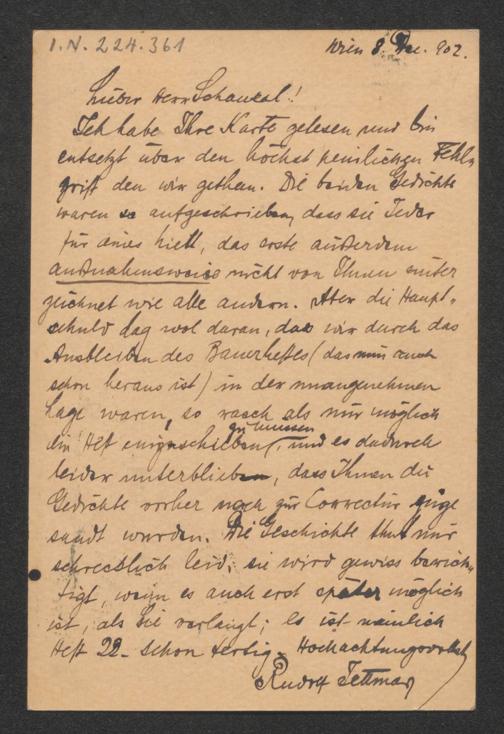 I.N. 224.361
Wien 8. Dec. 902.
Lieber Herr Schaukal!
Ich habe Ihre Karte gelesen und bin
entsetzt über den höchst peinlichen Fehl-
griff den wir gethan. Die beiden Gedichte
waren so aufgeschrieben, dass sie Jeder
für eines hielt, das erste außerdem
ausnahmsweise nicht von Ihnen unter
zeichnet wie alle andern. Aber die Haupt-
schuld lag wol daran, das wir durch das
Ausbleiben des Bauerheftes (das nun auch
schon heraus ist) in der unangenehmen
Lage waren, so rasch als nur möglich
ein Heft einzuschieben zu müssen, und es dadurch
leider unterblieb, dass Ihnen die
Gedichte vorher noch zur Correctur zuge
sandt wurden. Die Geschichte thut mir
schrecklich leid; sie wird gewiss berich-
tigt, wenn es auch erst später möglich
ist, als Sie verlangt; es ist nämlich
Heft 22 schon fertig. Hochachtungsvollst
Rudolf Jettmar